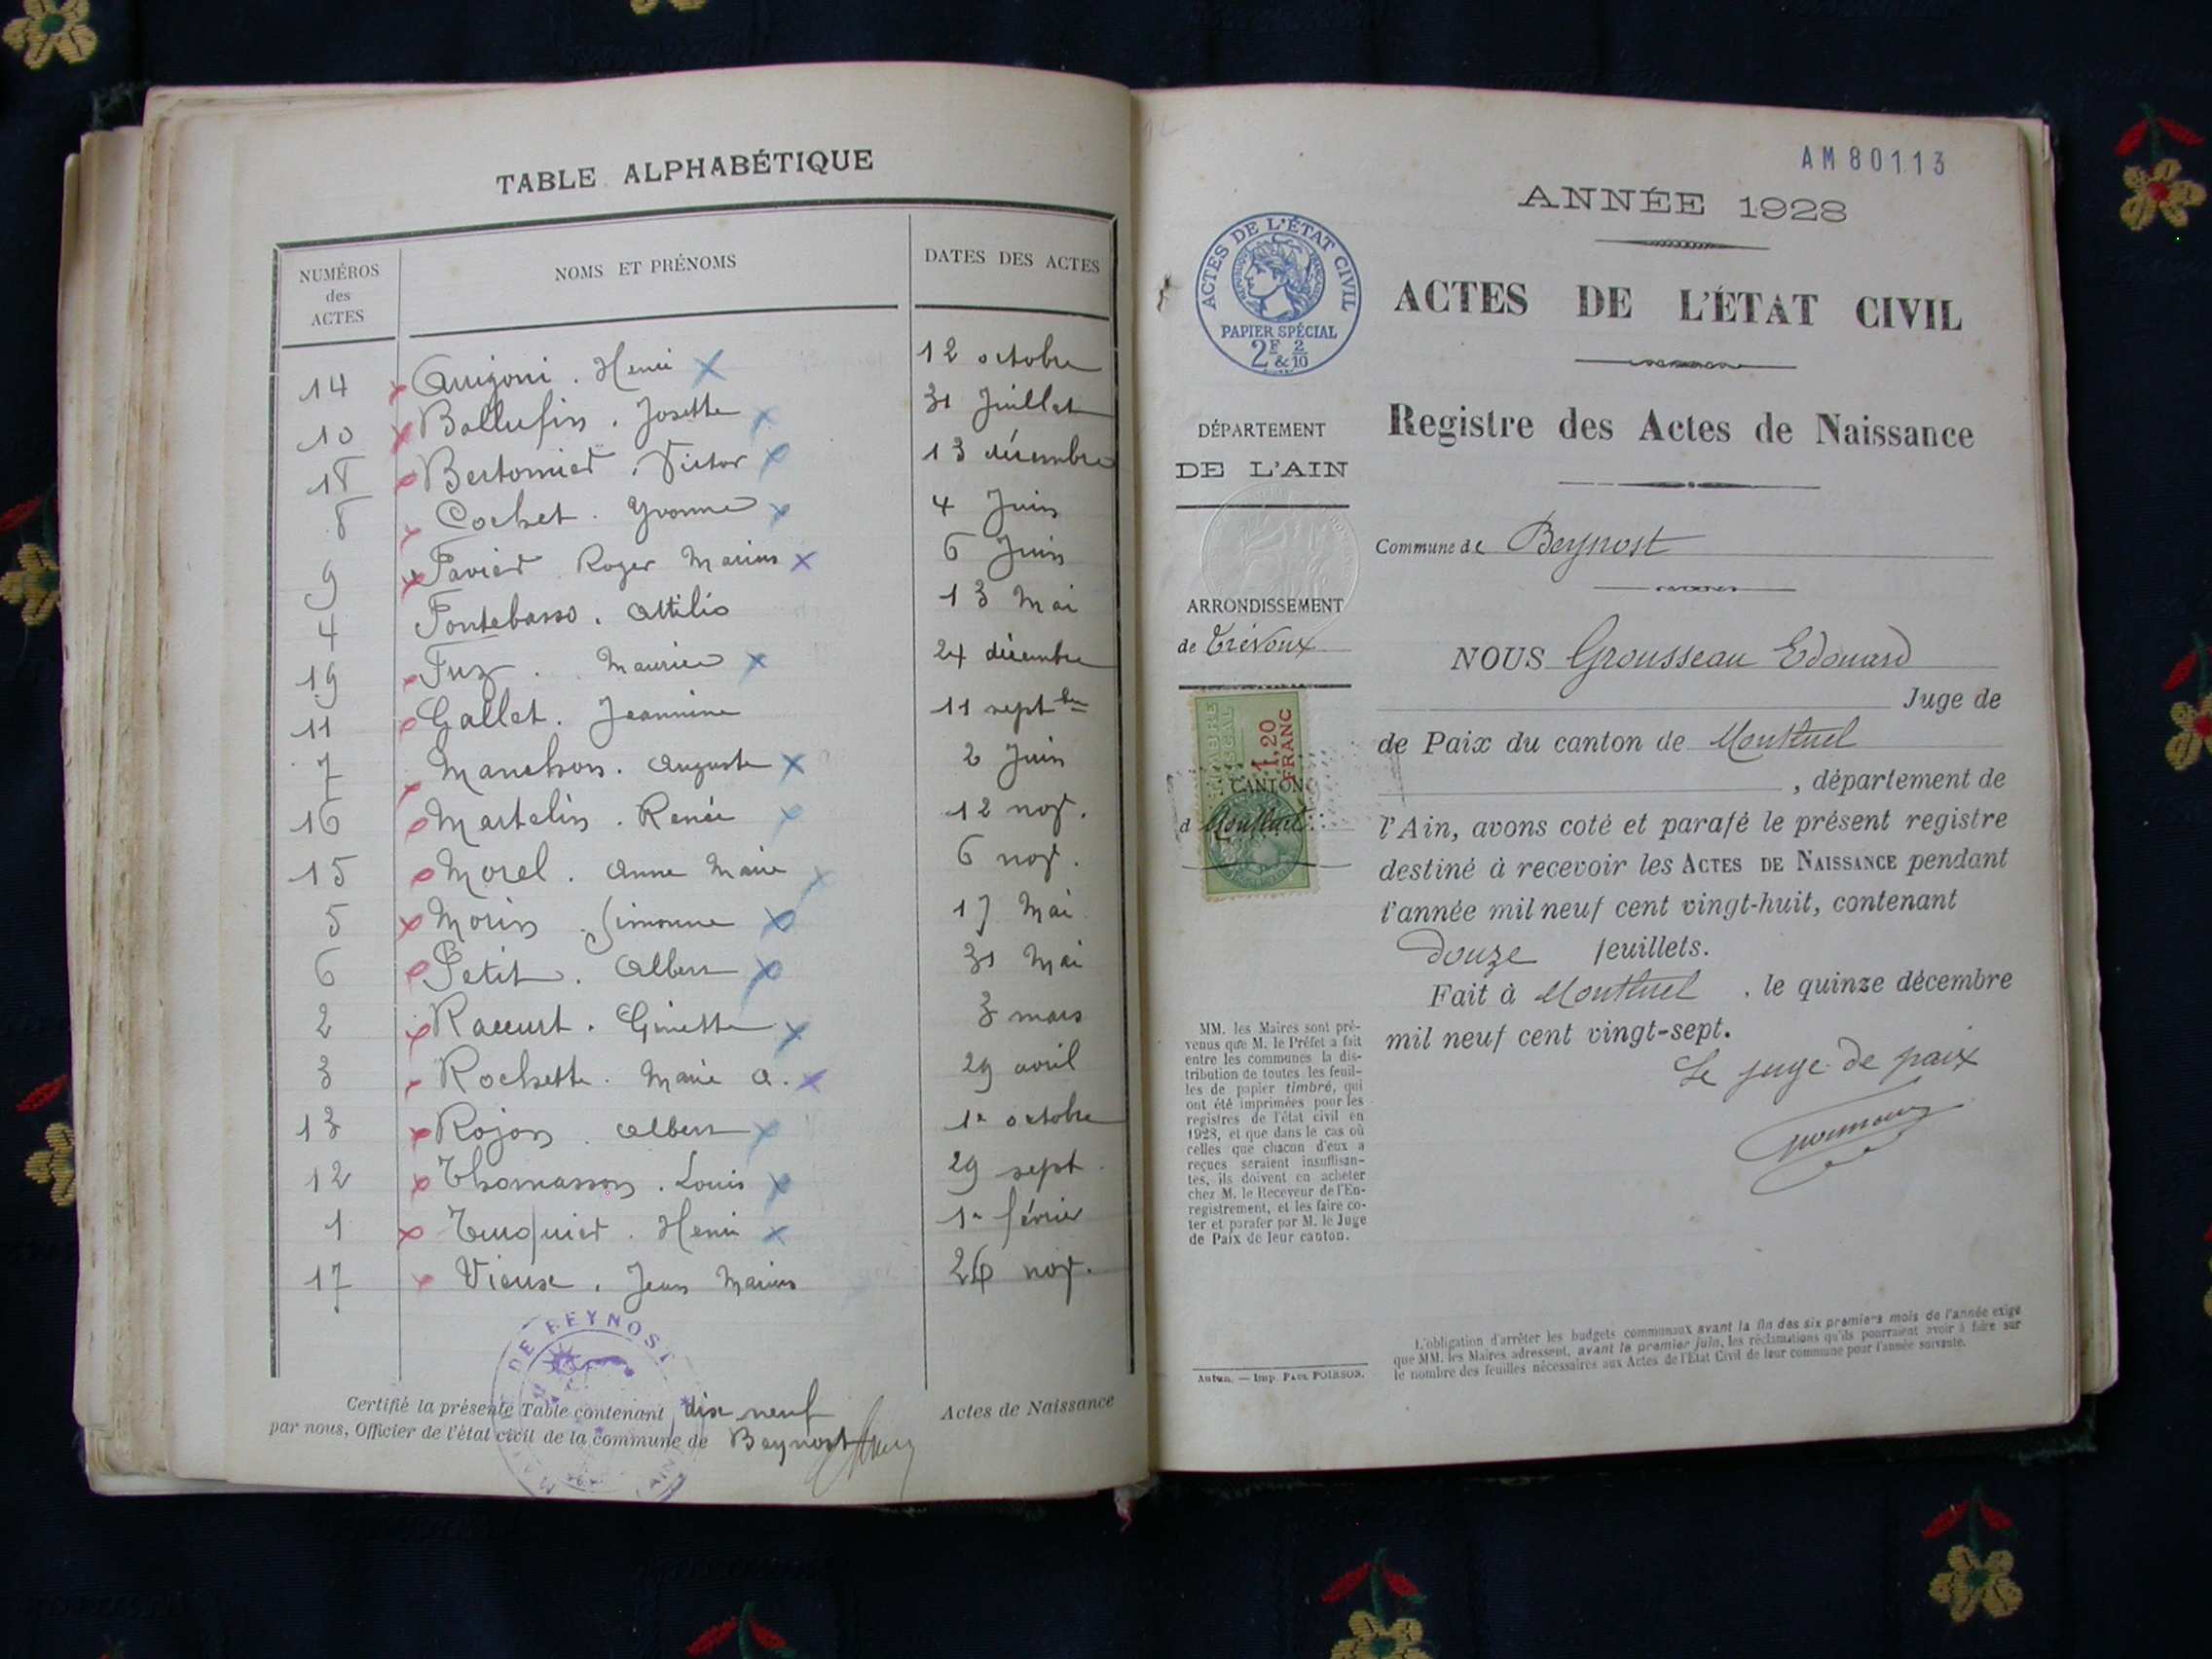 TABLE ALPHABÉTIQUE
NUMÉROS des ACTES NOMS ET PRÉNOMS DATES DES ACTES
14 Arrigoni . Henri 12 octobre
10 Josette 31 Juillet
18 Bertomier . Victor 13 décembre
8 Cochet . Yvonne 4 Juin
9 Favier Roger Marius 6 Juin
4 Fontebasso . Attilio 13 Mai
19 Fuz . Maurice 24 décembre
11 Gallet . Jeannine 11 septbre
7 Manchon . Auguste 2 Juin
16 Martelin . Renée 12 nov.
15 Morel . Anne Marie 6 nov.
5 Morin . Simonne 17 Mai
6 Petit . Albert 31 Mai
2 Raccurt . Ginette 3 mars
3 Rochette . Marie A. 29 avril
13 Rojon . Albert 1er octobre
12 Thomasson . Louis 29 sept.
1 Turquier . Henri 1er février
17 Vieux . Jean Marius 26 nov.
DE BEYNOST
Certifié la présente Table contenant dix neuf Actes de Naissance
par nous, Officier de l'état civil de la commune de Beynost
AM80113
ANNÉE 1928
ACTES DE L'ÉTAT CIVIL
RÉPUBLIQUE FRANÇAISE
PAPIER SPÉCIAL
2F & 2/10
ACTES DE L'ÉTAT CIVIL
Registre des Actes de Naissance
DÉPARTEMENT
DE L'AIN
Commune de Beynost
ARRONDISSEMENT
de Trévoux
NOUS Grousseau Edouard
Juge de
de Paix du canton de Montluel
, département de
l'Ain, avons coté et parafé le présent registre
destiné à recevoir les ACTES DE NAISSANCE pendant
l'année mil neuf cent vingt-huit, contenant
douze feuillets.
Fait à Montluel , le quinze décembre
mil neuf cent vingt-sept.
Le juge de paix
TIMBRE
FISCAL
1,20
FRANC
CANTON
d Montluel
MM. les Maires sont pré-
venus que M. le Préfet a fait
entre les communes la dis-
tribution de toutes les feuil-
les de papier timbré, qui
ont été imprimées pour les
registres de l'état civil en
1928, et que dans le cas où
celles que chacun d'eux a
reçues seraient insuffisan-
tes, ils doivent en acheter
chez M. le Receveur de l'En-
registrement, et les faire co-
ter et parafer par M. le Juge
de Paix de leur canton.
Autun. — Imp. PAUL POIRSON.
L'obligation d'arrêter les budgets communaux avant la fin des six premiers mois de l'année exige
que MM. les Maires adressent, avant le premier juin, les réclamations qu'ils pourraient avoir à faire sur
le nombre des feuilles nécessaires aux Actes de l'État Civil de leur commune pour l'année suivante.